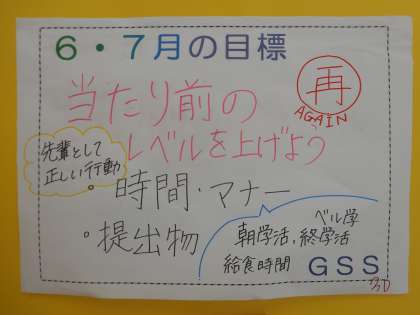 6・7月の目標
再
AGAIN
当たり前の
レベルを上げよう
先輩として
正しい行動
・時間・マナー
・提出物
ベル学
朝学活、終学活
給食時間
GSS
3D